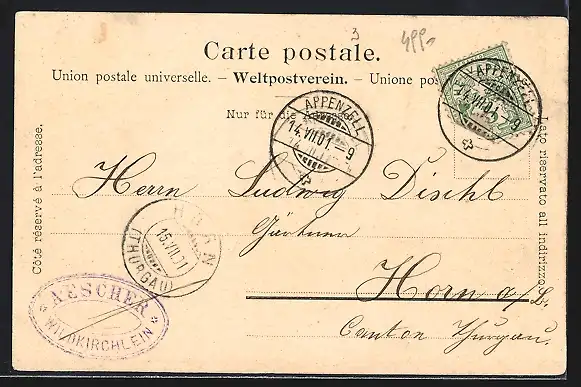 3 499.-
Carte postale.
Union postale universelle. – Weltpostverein. – Unione
APPENZELL
14.VII.01.–9
APPENZELL
14.VII.01.–9
Nur für die Adresse
Côté réservé à l'adresse.
Lato riservato all indirizzo.
Herrn Ludwig Dischl
Gärtner
HORN
15.VII.01
(THURGAU)
Horn a/B.
Canton Thurgau.
AESCHER
WILDKIRCHLEIN